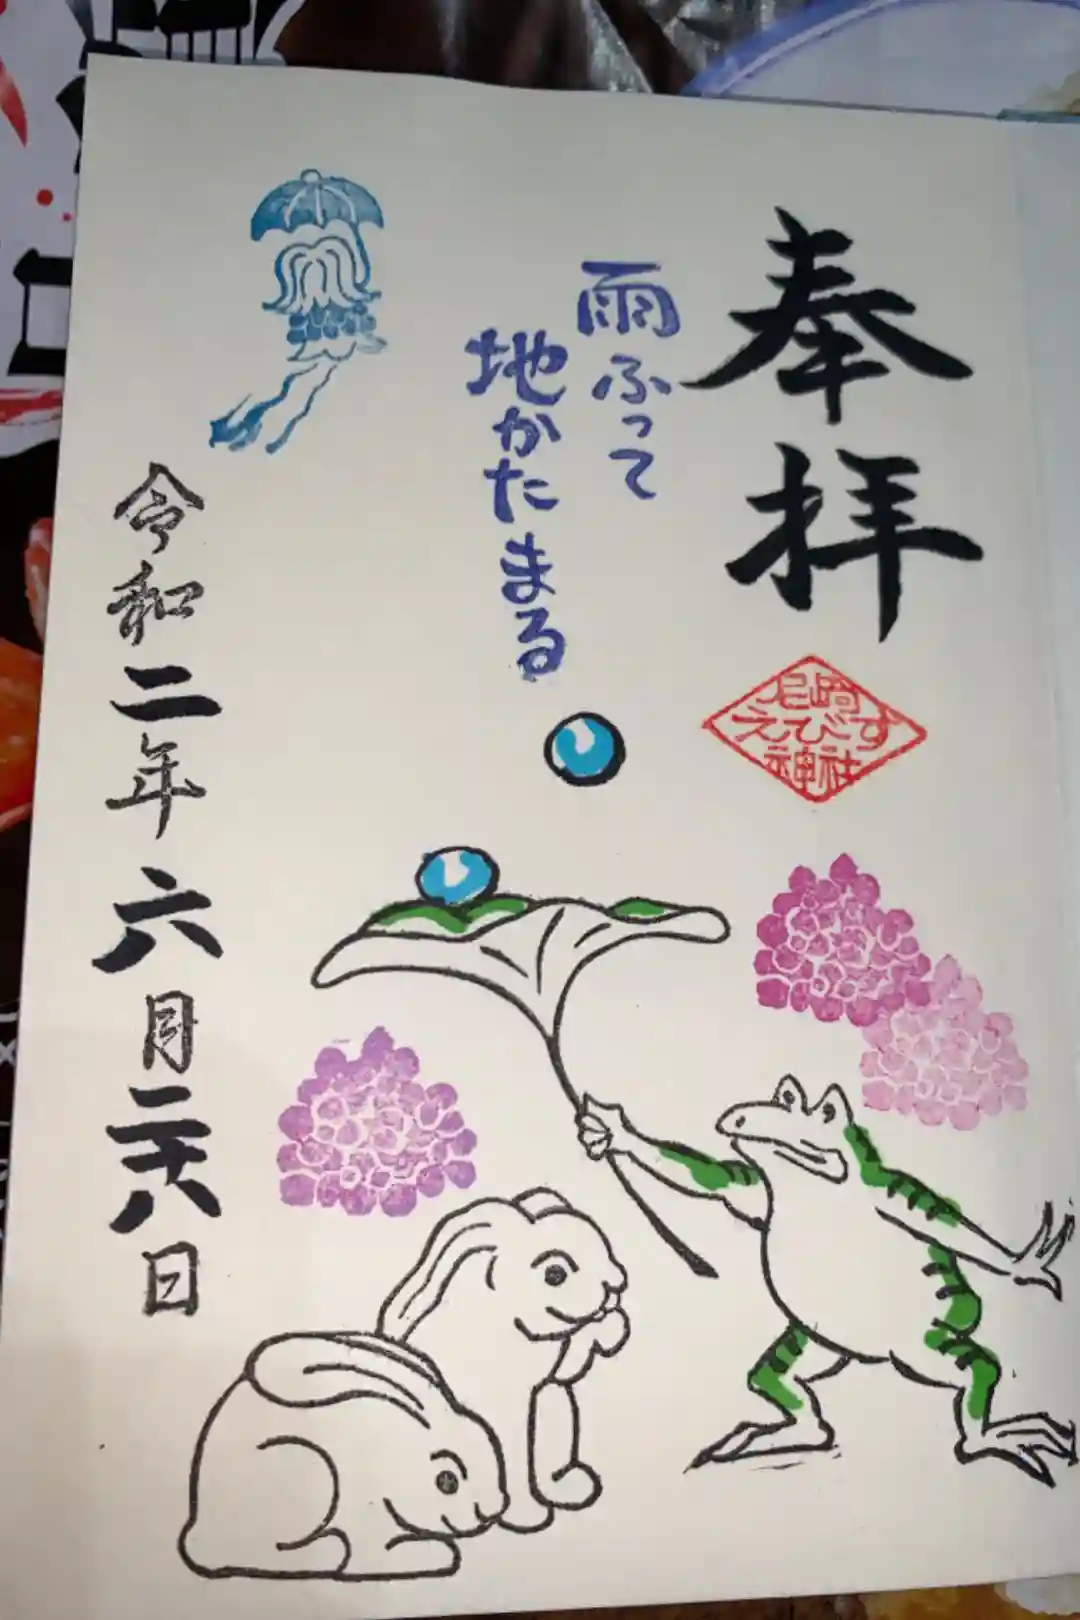 奉拝
尼崎
えびす
神社
雨ふって
地かたまる
令和二年六月二十六日